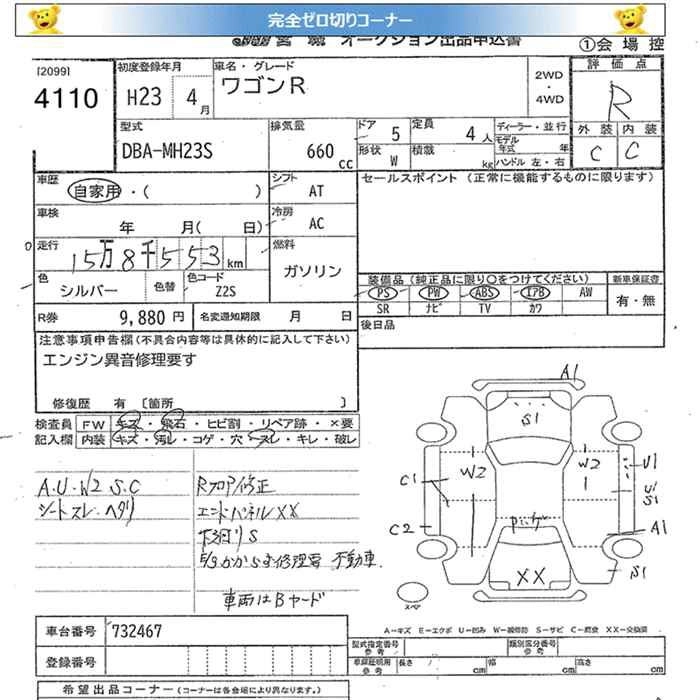 完全ゼロ切りコーナー
オークション出品申込書
①会場控
[2099]
4110
初度登録年月
H23 4月
車名・グレード
ワゴンR
2WD
・
4WD
評価点
R
外装 内装
C C
型式
DBA-MH23S
排気量
660 cc
ドア 5
定員 4人
形状 W
積載 kg
ディーラー・並行
モデル年式 年
ハンドル 左・右
車歴
自家用・( )
シフト
AT
車検
年 月( 日)
冷房
AC
走行
15万8千553km
燃料
ガソリン
色
シルバー
色替
色コード
Z2S
R券 9,880円
名変通知期限 月 日
セールスポイント (正常に機能するものに限ります)
装備品(純正品に限り○をつけてください)
新車保証書
PS PW ABS エアB AW
SR ナビ TV カワ
有・無
後日品
注意事項申告欄(不具合内容等は具体的に記入して下さい)
エンジン異音修理要す
修復歴 有 [箇所 ]
検査員 FW キズ・飛石・ヒビ割・リペア跡・×要
記入欄 内装 キズ・汚レ・コゲ・穴・スレ・キレ・破レ
A.U.W2 S.C
シートスレ・ヘタリ
Rフロア修正
エンドパネルXX
下廻りS
不動車
車両はBヤード
A1
S1
W2 W2
U1
C1
U1
S1
C2
A1
XX
S1
スペア
A-キズ E-エクボ U-凹み W-補修跡 S-サビ C-腐食 XX-交換済
車台番号 732467
登録番号
型式指定番号
参考
類別区分番号
参考
車庫証明用
参考
長さ cm
幅 cm
高さ cm
希望出品コーナー(コーナーは各会場により異なります。)